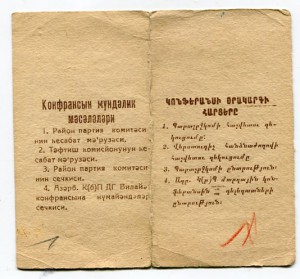 Конфрансын күндәлик
мәсәләләри
1. Район партия комитәси
нин һесабат мә'рузәси.
2. Тәфтиш комисйонунун һе-
сабат мә'рузәси.
3. Район партия комитәси
нин сечкиси.
4. Азәрб. К(б)П ДГ Вилајәт
конфрансына нүмајәндәләр
сечкиси.
ԿՈՆՖԵՐԱՆՍԻ ՕՐԱԿԱՐԳԻ
ՀԱՐՑԵՐԸ
1. Պարտշրջկոմի հաշվետու զե-
կուցումը։
2. Վերստուգիչ հանձնաժողովի
հաշվետու զեկուցումը։
3. Պարտշրջկոմի ընտրություն։
4. Ադր. Կ(բ)Պ մարզային կոն-
ֆերանսին դելեգատների
ընտրություն։